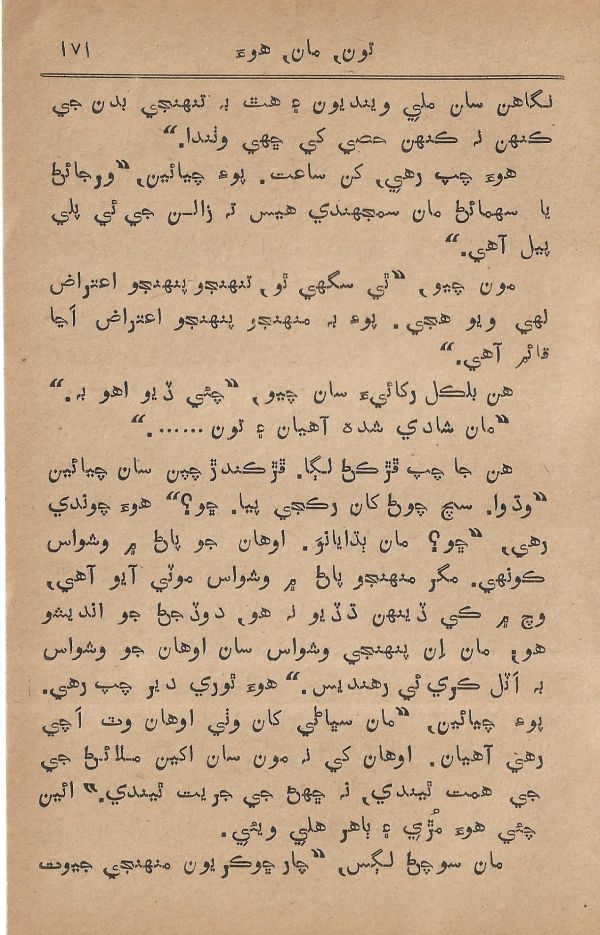 تون, مان, هوءَ ۱۷۱
لڳاهن سان ملي وينديون ۽ هٿ بہ تنهنجي بدن جي
ڪنهن نہ ڪنهن حصي کي ڇهي وٺندا.“
هوءَ چپ رهي, کن ساعت. پوءِ چيائين, ”ورجائڻ
يا سهمائڻ مان سمجهندي هيس تہ زالن جي ئي پلي
پيل آهي.“
مون چيو, ”ٿي سگهي ٿو, تنهنجو پنهنجو اعتراض
لهي ويو هجي. پوءِ بہ منهنجو پنهنجو اعتراض اڃا
قائم آهي.“
هن بلڪل رکائيءَ سان چيو, ”چئي ڏيو اهو بہ.“
”مان شادي شده آهيان ۽ تون.......“
هن جا چپ ڦڙڪڻ لڳا. ڦڙڪندڙ چپن سان چيائين
”وڌوا. سچ چوڻ کان رڪجي پيا. ڇو؟“ هوءَ چوندي
رهي, ”ڇو؟ مان ٻڌايانوَ. اوهان جو پاڻ ۾ وشواس
ڪونهي. مگر منهنجو پاڻ ۾ وشواس موٽي آيو آهي,
وچ ۾ ڪي ڏينهن ڌڏيو نہ هو, دوڏجڻ جو انديشو
هو; مان اِن پنهنجي وشواس سان اوهان جو وشواس
بہ اَٽل ڪري ئي رهنديس.“ هوءَ ٿوري دير چپ رهي.
پوءِ چيائين, ”مان سڀاڻي کان وٺي اوهان وٽ اَچي
رهي آهيان. اوهان کي نہ مون سان اکين ملائڻ جي
جي همت ٿيندي, نہ ڇهڻ جي جريت ٿيندي.“ ائين
چئي هوءَ مُڙي ۽ ٻاهر هلي ويئي.
مان سوچڻ لڳس, ”چار ڇوڪريون منهنجي جيوت